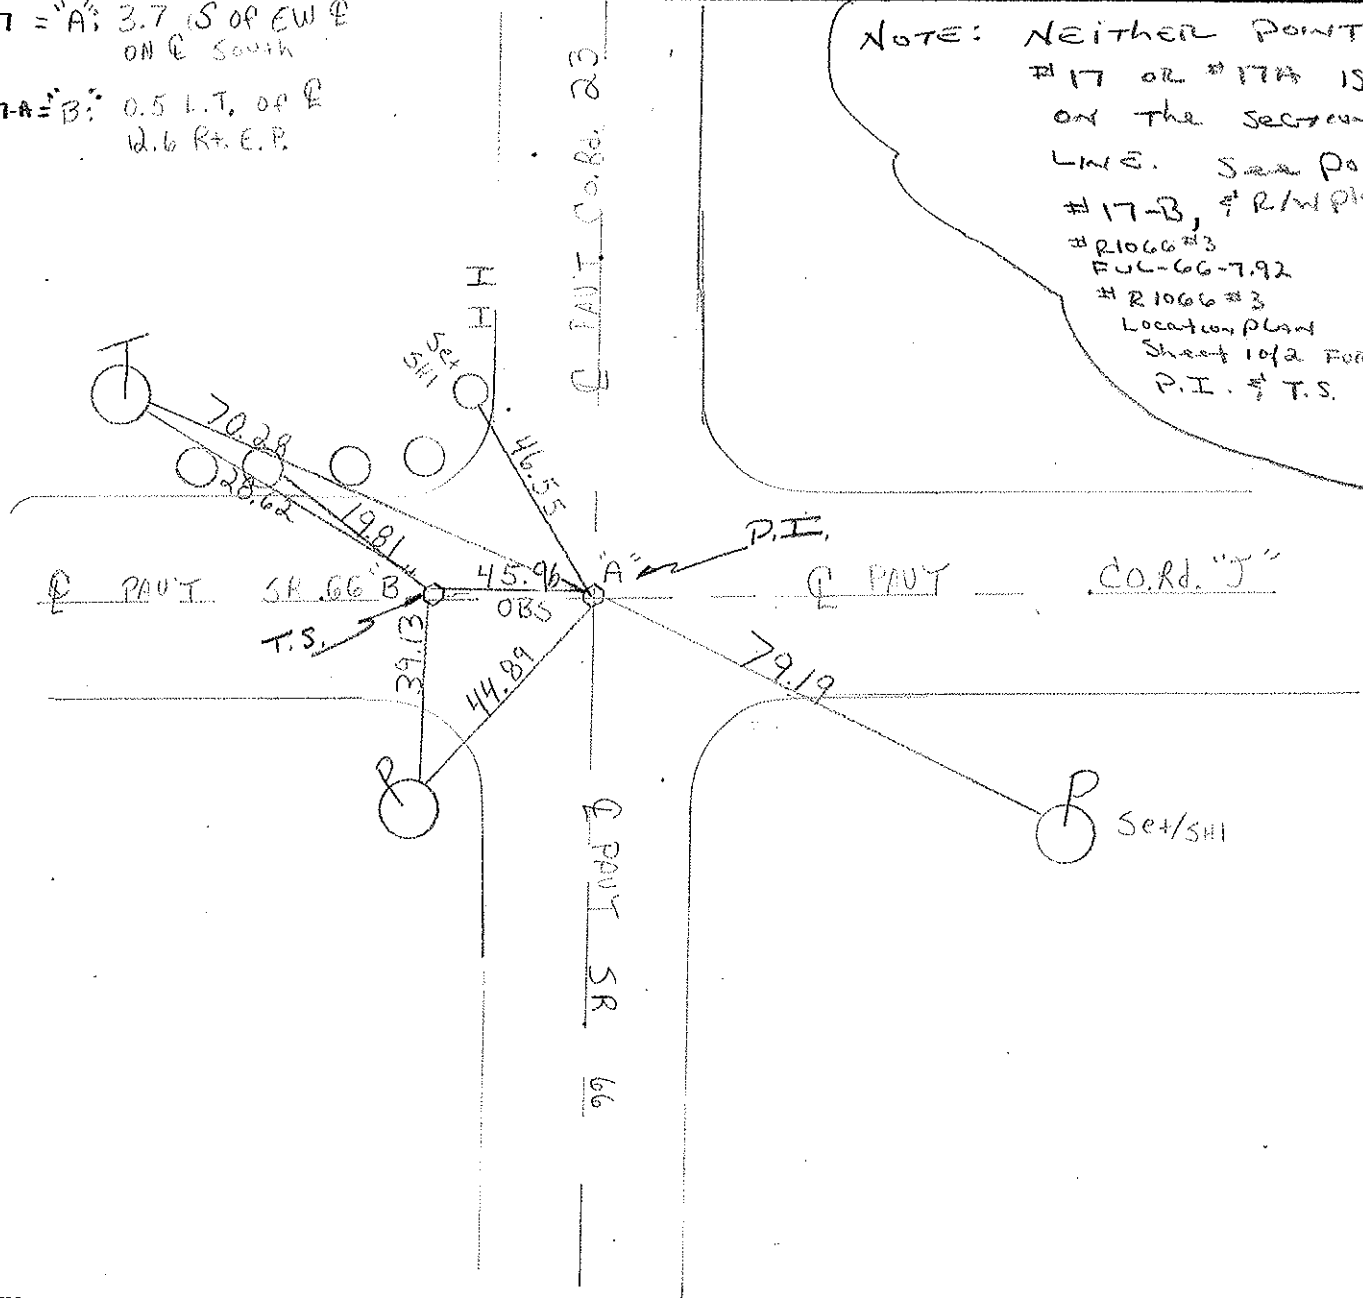 7 = "A": 3.7 S OF EW ℄
ON ℄ South
7-A = "B": 0.5 LT. OF ℄
12.6 Rt. E.P.
NOTE: NEITHER POINT
#17 OR #17A IS
ON The
LINE. See Po
#17-B, & R/W Pl
#R1066 #3
FUL-66-7.92
#R1066 #3
Location PLAN
Sheet 1 of 2 FOR
P.I. & T.S.
℄ PAV'T Co.Rd. 23
Set
SHI
T
70.28
28.62
19.81
46.55
P.I.
"A"
45.96
OBS
℄ PAV'T SR 66 "B"
℄ PAV'T CO.Rd. "J"
T.S.
39.13
44.89
79.19
P
P
Set/SHI
℄ PAV'T SR 66